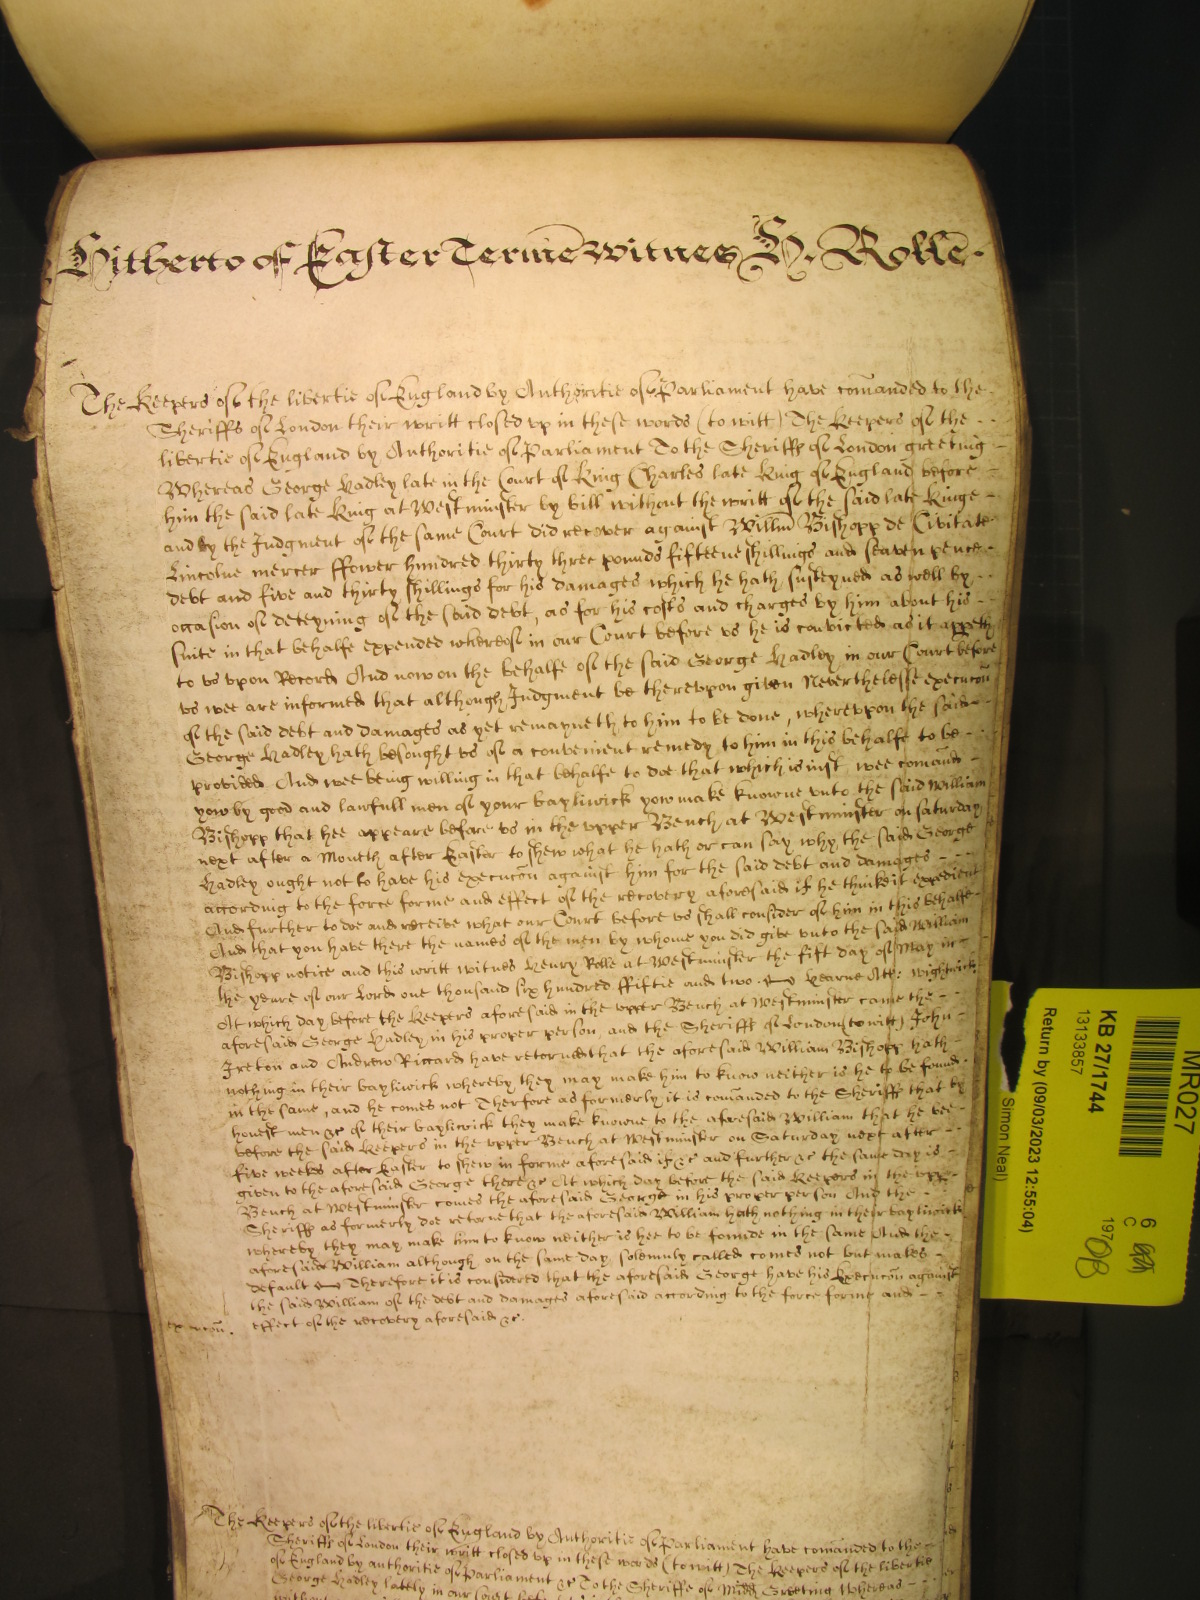 Hitherto of Easter Terme witnes H. Rolle.
The Keepers of the libertie of England by Authoritie of Parliament have comanded to the
Sheriffs of London their writt closed vp in these words (to witt) The Keepers of the
libertie of England by Authoritie of Parliament To the Sheriffs of London greeting
Whereas George Hadley late in the Court of King Charles late King of England before
him the said late King at Westminster by bill without the writt of the said late Kinge
and by the Judgment of the same Court did recover against Willm Bishopp de Civitate
Lincolne mercer ffower hundred thirty three pounds fifteene shillings and seaven pence
debt and five and thirty shillings for his damages which he hath susteyned as well by
occasion of deteyning of the said debt, as for his costs and charges by him about his
suite in that behalfe expended whereof in our Court before vs he is convicted as it appeth
to vs vpon Record And now on the behalfe of the said George Hadley in our Court before
vs wee are informed that although Judgment be therevpon given Neverthelesse execucon
of the said debt and damages as yet remayneth to him to be done, wherevpon the said
George Hadley hath besought vs of a convenient remedy to him in this behalfe to be
provided And wee being willing in that behalfe to doe that which is iust wee comand
yow by good and lawfull men of your bayliwick yow make knowne vnto the said William
Bishopp that hee appeare before vs in the vpper Bench at Westminster on saturday
next after a Moneth after Easter to shew what he hath or can say why the said George
Hadley ought not to have his execucon against him for the said debt and damages
according to the force forme and effect of the recovery aforesaid if he thinke it expedient
And further to doe and receive what our Court before vs shall consider of him in this behalfe
And that you have there the names of the men by whome you did give vnto the said William
Bishopp notice and this writt witnes Henry Rolle at Westminster the fift day of May in
the yeare of our Lord one thousand six hundred ffiftie and two. Hearne Att: Wightwick
At which day before the Keepers aforesaid in the vpper Bench at Westminster came the
aforesaid George Hadley in his proper person, and the Sheriffs of London (to witt) John
Ireton and Andrew Riccard have retorned that the aforesaid William Bishopp hath
nothing in their bayliwick whereby they may make him to know neither is he to be found
in the same, and he comes not Therfore as formerly it is comanded to the Sheriffs that by
honest men &c of their bayliwick they make knowne to the aforesaid William that he bee
before the said Keepers in the vpper Bench at Westminster on Saturday next after
five weeks after Easter to shew in forme aforesaid if &c and further &c the same day is
given to the aforesaid George there &c At which day before the said Keepers in the vpp
Bench at Westminster comes the aforesaid George in his proper person And the
Sheriffs as formerly doe retorne that the aforesaid William hath nothing in their bayliwick
whereby they may make him to know neither is hee to be founde in the same And the
aforesaid William although on the same day solemnly called comes not but makes
default Therefore it is considered that the aforesaid George have his Execucon against
the said William of the debt and damages aforesaid according to the force forme and
execucon. effect of the recovery aforesaid &c.
The Keepers of the libertie of England by Authoritie of Parliament have comanded to the
Sheriffs of London their writt closed vp in these words (to witt) The Keepers of the libertie
of England by authoritie of Parliament &c To the Sheriffe of Greeting Whereas
George Hadley lately in our Court
MR027
KB 27/1744
13133857
Return by (09/03/2023 12:55:04)
Simon Neal)
6
C
197